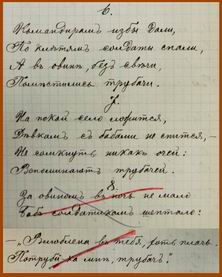 6.
Командирамъ избы дали,
По клѣтямъ солдаты спали,
А въ овинѣ, безъ свѣчи,
Помѣстились трубачи.
7.
На покой село ложится,
Дѣвкамъ съ бабами не спится, –
Не сомкнутъ никакъ очей:
Вспоминаютъ трубачей.
8.
За овиномъ въ ночь не мало
Баба солдатикамъ шептала:
–„Влюблена въ тебя, хоть плачь.
Потруби ка мнѣ, трубачъ!"